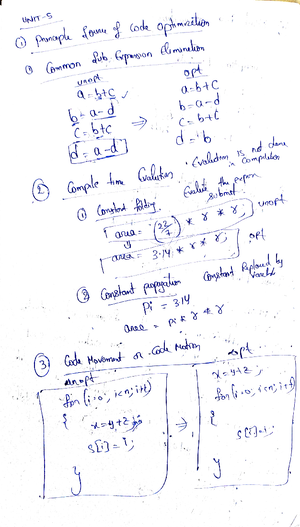 UNIT-5
① Principle forms of code optimization
① Common Sub Expression Elimination
unopt
a=b+c
b=a-d
c=b+c
d=a-d
⇒
opt
a=b+c
b=a-d
c=b+c
d=b
② Compile time Evalution
Evalution is not done in compilation
① Constant folding
area = (22/7) * r * r; unopt
area = 3.14 * r * r; opt
② Constant propagation
Constant Replaced by
Pi = 3.14
area = pi * r * r
③ Code Movement or Code Motion
unopt
for(i=0; i<n; i++)
{
x=y+z;
s[i]=i;
}
⇒
opt
x=y+z;
for(i=0; i<n; i++)
{
s[i]=i;
}